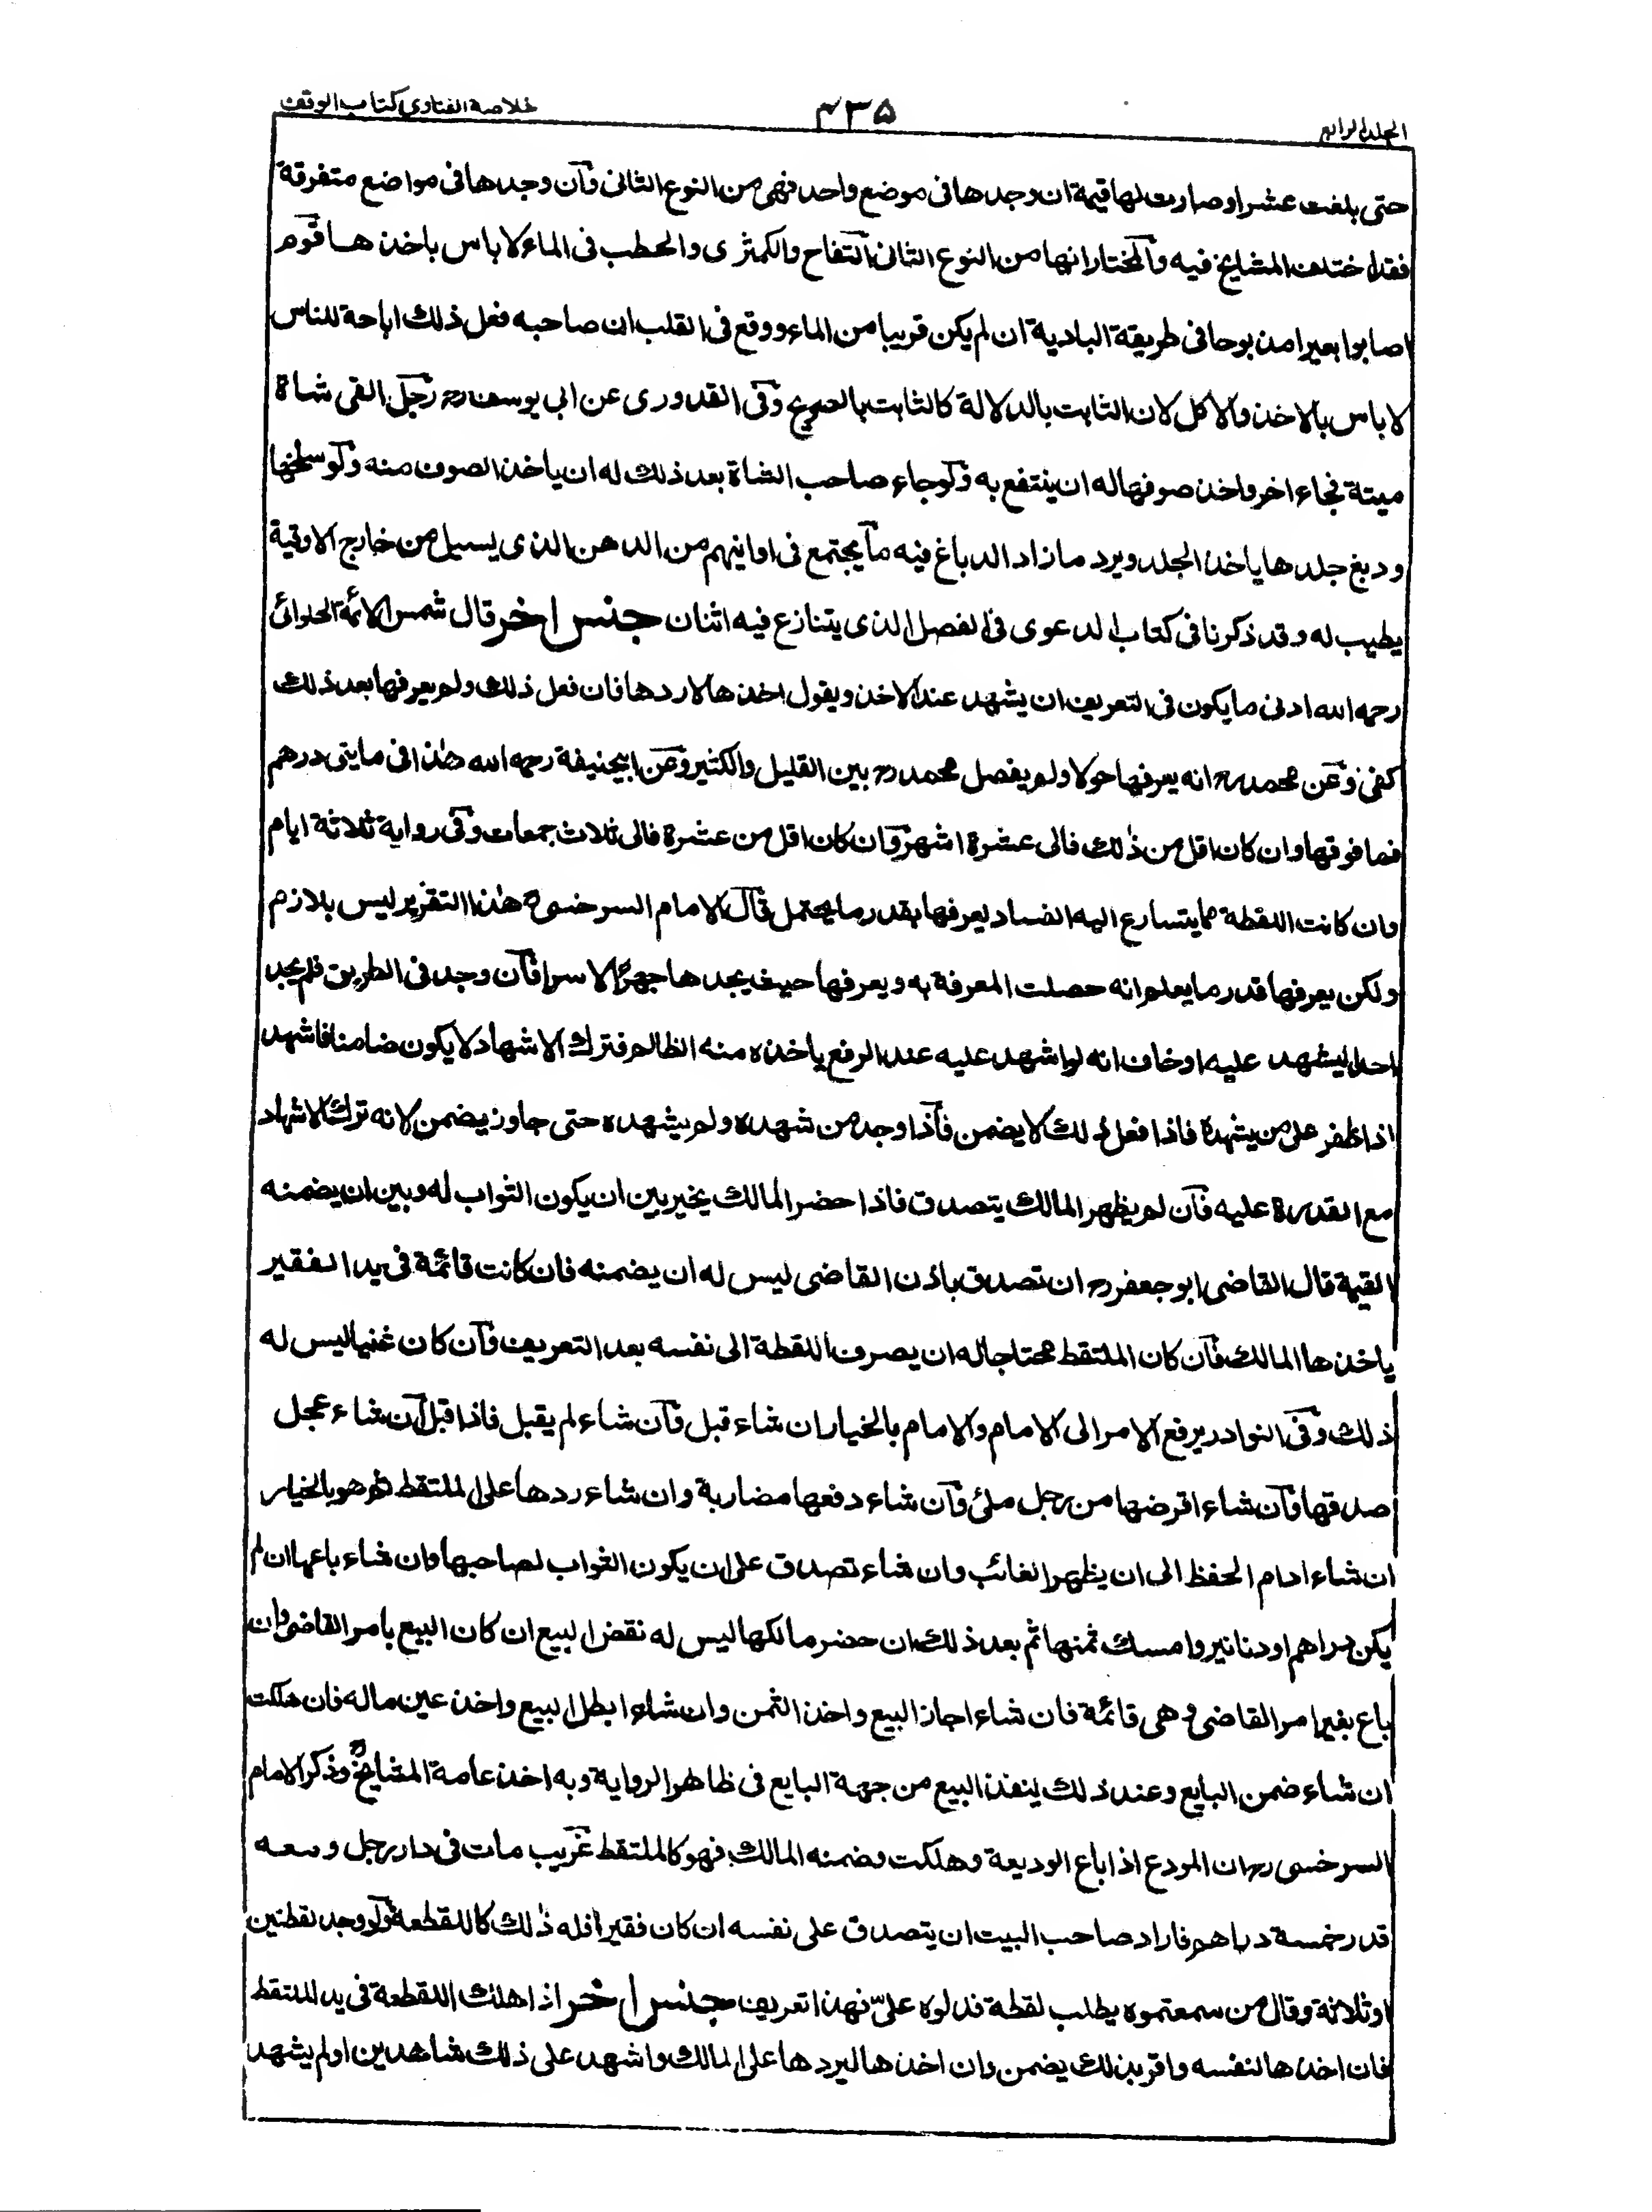 الجلد الرابع ۴۳۵ خلاصة الفتاوى كتاب الوقف
حتى بلغت عشرا وصارت لها قيمة ان وجدها فى موضع واحد فهى من النوع الثانى وان وجدها فى مواضع متفرقة
فقد اختلف المشايخ فيه والمختار انها من النوع الثانى التفاح والكمثرى والحطب فى الماء لا باس باخذها قوم
اصابوا بعيرا مذبوحا فى طريقة البادية ان لم يكن قريبا من الماء ووقع فى القلب ان صاحبه فعل ذلك اباحة للناس
لا باس بالاخذ والاكل لان الثابت بالدلالة كالثابت بالصريح وفى القدورى عن ابى يوسف رح رجل القى شاة
ميتة فجاء اخر واخذ صوفها له ان ينتفع به ولو جاء صاحب الشاة بعد ذلك له ان ياخذ الصوف منه ولو سلخها
ودبغ جلدها ياخذ الجلد ويرد ما زاد الدباغ فيه ما يجتمع فى اوانيهم من الدهن الذى يسيل من خارج الاوقية
يطيب له وقد ذكرنا فى كتاب الدعوى فى الفصل الذى يتنازع فيه اثنان جنس اخر قال شمس الائمة الحلوائى
رحمه الله ادنى ما يكون فى التعريف ان يشهد عند الاخذ ويقول اخذها لاردها فان فعل ذلك ولم يعرفها بعد ذلك
كفى وعن محمد رح انه يعرفها حولا ولم يفصل محمد رح بين القليل والكثير وعن ابيحنيفة رحمه الله هذا فى مايتى درهم
فما فوقها وان كان اقل من ذلك فالى عشرة اشهر وان كان اقل من عشرة فالى ثلاث جمعات وفى رواية ثلاثة ايام
وان كانت اللقطة مما يتسارع اليه الفساد يعرفها بقدر ما يحتمل قال الامام السرخسى رح هذا التقرير ليس بلازم
ولكن يعرفها قدر ما يعلم انه حصلت المعرفة به ويعرفها حيث يجدها جهرا لا سرا فان وجد فى الطريق فلم يجد
احدا ليشهد عليه او خاف انه لو اشهد عليه عند الرفع ياخذه منه الظالم فترك الاشهاد لا يكون ضامنا فاشهد
اذا ظفر على من يشهده فاذا فعل ذلك لا يضمن فاذا وجد من شهده ولم يشهده حتى جاوز يضمن لانه ترك الاشهاد
مع القدرة عليه فان لم يظهر المالك يتصدق فاذا حضر المالك يخير بين ان يكون الثواب له وبين ان يضمنه
القيمة قال القاضى ابو جعفر رح ان تصدق باذن القاضى ليس له ان يضمنه فان كانت قائمة فى يد الفقير
ياخذها المالك فان كان الملتقط محتاجا له ان يصرف اللقطة الى نفسه بعد التعريف وان كان غنيا ليس له
ذلك وفى النوادر يرفع الامر الى الامام والامام بالخيار ان شاء قبل وان شاء لم يقبل فاذا قبل ان شاء عجل
صدقها وان شاء اقرضها من رجل ملئ وان شاء دفعها مضاربة وان شاء ردها على الملتقط ثم هو بالخيار
ان شاء ادام الحفظ الى ان يظهر الغائب وان شاء تصدق على ان يكون الثواب لصاحبها وان شاء باعها ان لم
يكن دراهم او دنانير وامسك ثمنها ثم بعد ذلك ان حضر مالكها ليس له نقض البيع ان كان البيع بامر القاضى وان
باع بغير امر القاضى وهى قائمة فان شاء اجاز البيع واخذ الثمن وان شاء ابطل البيع واخذ عين ماله فان هلكت
ان شاء ضمن البايع وعند ذلك ينفذ البيع من جهة البايع فى ظاهر الرواية وبه اخذ عامة المشايخ رح وذكر الامام
السرخسى رح ان المودع اذا باع الوديعة وهلكت وضمنه المالك فهو كالملتقط غريب مات فى دار رجل ومعه
قدر خمسة دراهم فاراد صاحب البيت ان يتصدق على نفسه ان كان فقيرا فله ذلك كاللقطة ولو وجد لقطتين
او ثلاثة وقال من سمعتموه يطلب لقطة فدلوه علىّ فهذا تعريف جنس اخر اذا هلك اللقطة فى يد الملتقط
فان اخذها لنفسه واقر بذلك يضمن وان اخذها ليردها على المالك واشهد على ذلك شاهدين او لم يشهد